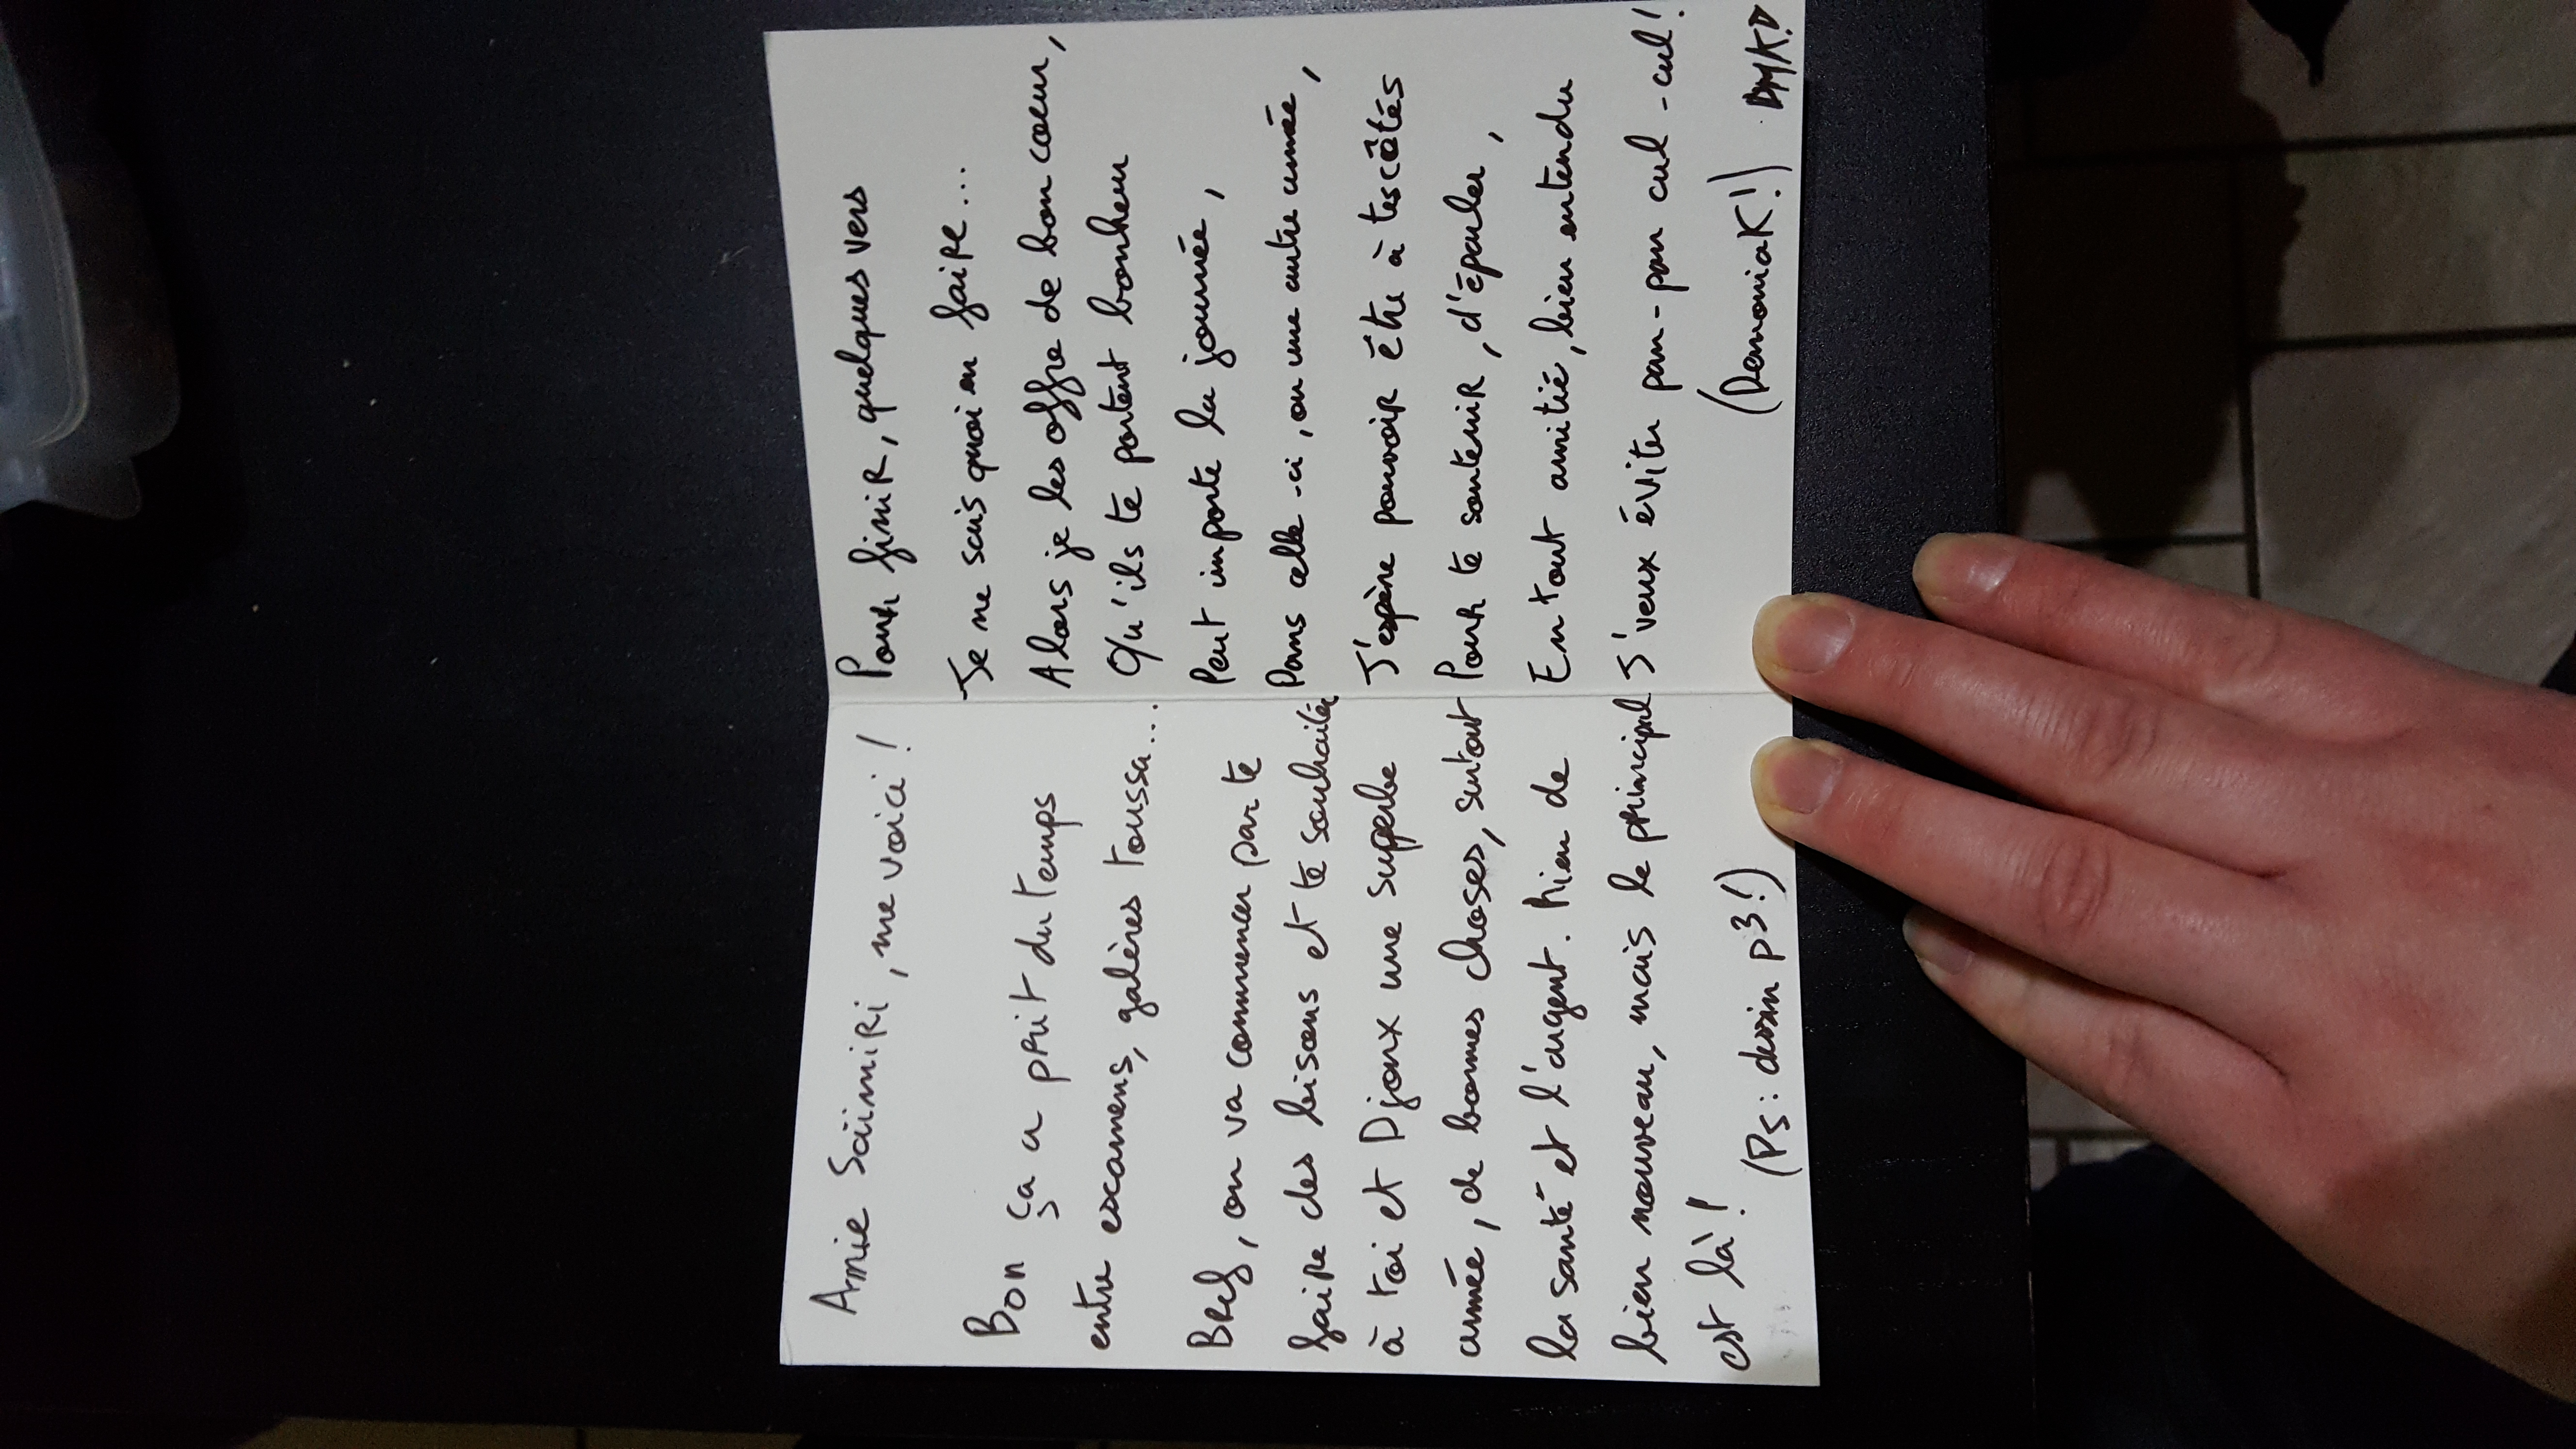 Amie Saïmiri, me voici !
Bon ça a prit du temps
entre examens, galères toussa...
Bref, on va commencer par te
faire des bisous et te souhaiter
à toi et Djoux une superbe
année, de bonnes choses, surtout
la santé et l'argent. Rien de
bien nouveau, mais le principal
est là !
(Ps : dessin p3 !)
Pour finir, quelques vers
Je ne sais quoi en faire...
Alors je les offre de bon cœur,
Qu'ils te portent bonheur
Peut importe la journée,
Dans celle-ci, ou une autre année,
J'espère pouvoir être à tes côtés
Pour te soutenir, d'épauler,
En tout amitié, bien entendu
J'veux éviter pan-pan cul-cul !
(Demoniak !)